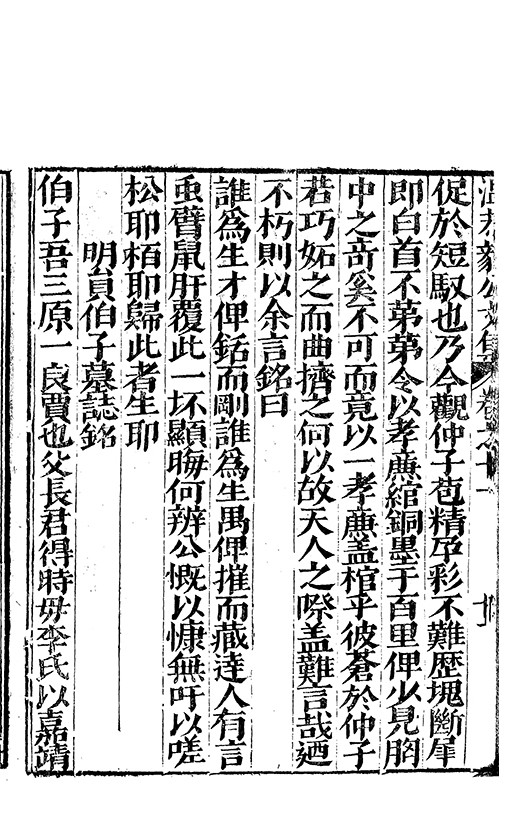 溫恭毅公文集 卷之十一
促於短馭也乃今觀仲子苞精孕彩不難歷塊斷犀
即白首不第第令以孝廉綰銅墨于百里俾少見胸
中之奇奚不可而竟以一孝廉盖棺乎彼蒼於仲子
若巧妬之而曲擠之何以故天人之際盖難言哉迺
不朽則以余言銘曰
誰爲生才俾銛而剛誰爲生禺俾摧而藏逹人有言
虫臂鼠肝覆此一坏顯晦何辨公慨以慷無吁以嗟
松耶栢耶歸此者生耶
明員伯子墓誌銘
伯子吾三原一良賈也父長君得時毋李氏以嘉靖